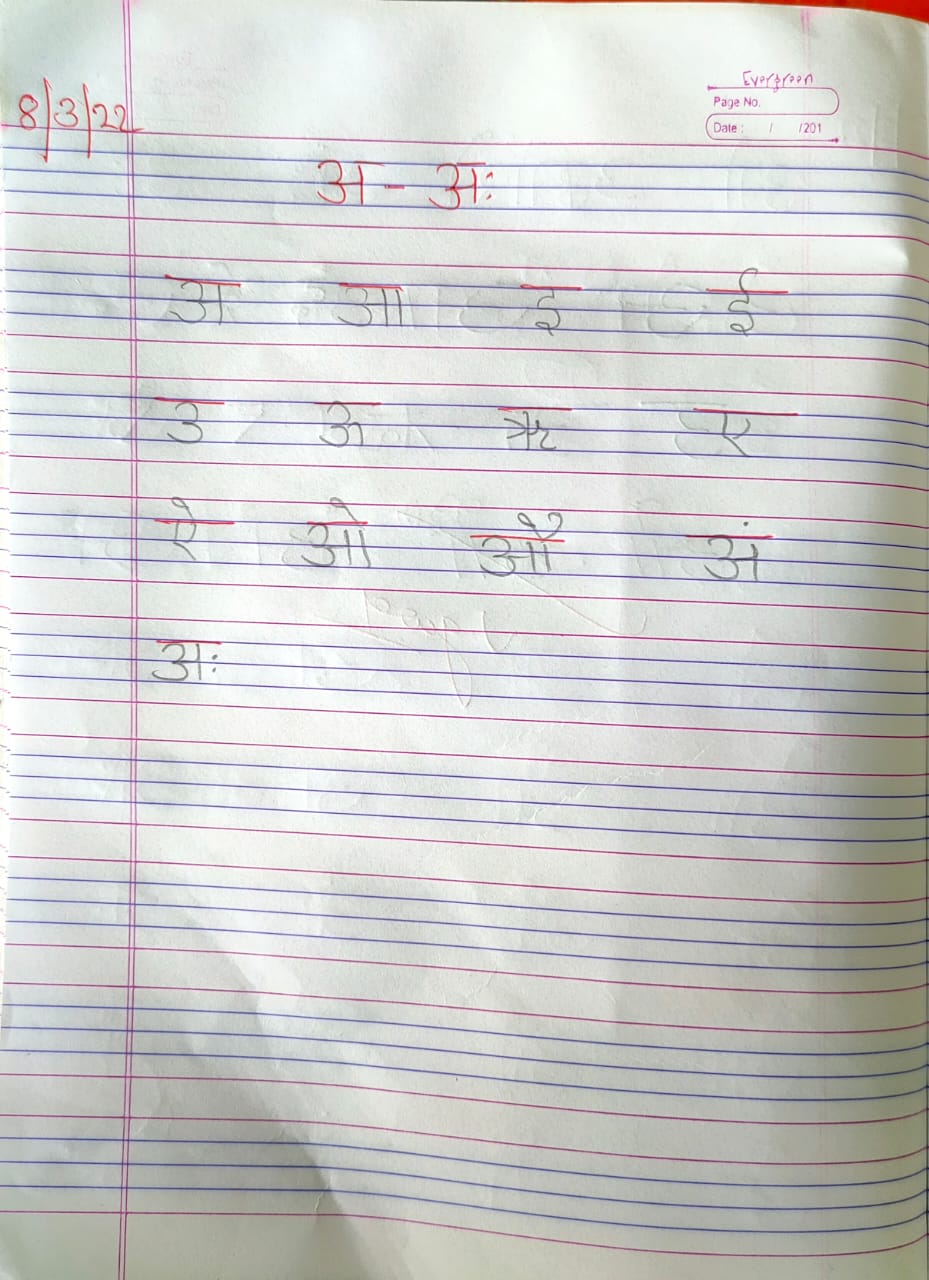 Evergreen
Page No.
Date : / /201
8/3/22
अ - अः
अ आ इ ई
उ ऊ ऋ ए
ऐ ओ औ अं
अः